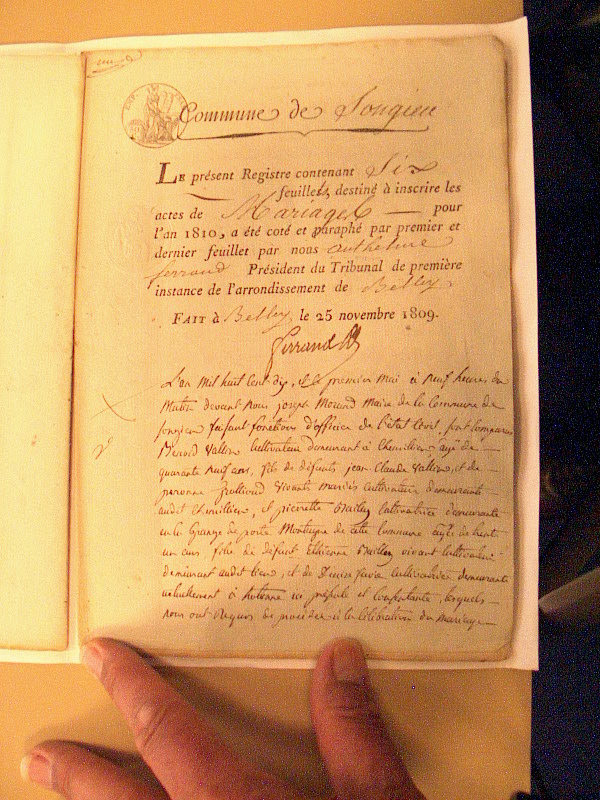 Commune de Songieu
LE présent Registre contenant Six
feuillets, destiné à inscrire les
actes de Mariages — pour
l'an 1810, a été coté et paraphé par premier et
dernier feuillet par nous anthelme
ferrand Président du Tribunal de première
instance de l'arrondissement de Belley.
FAIT à Belley, le 25 novembre 1809.
Ferrand
L'an Mil huit Cent dix, et le premier Mai à Neuf heures du
Matin devant Nous joseph Morand Maire de la Commune de
Songieu faisant fonctions d'officier de l'état Civil, sont Comparus
Benoid Vallin Cultivateur demeurant à Chemillieu âgé de
quarante Neuf ans, fils de défunts jean Claude Vallin, et de
vivants mariés cultivateurs demeurants
audit Chemillieu, et pierrette Bailly Cultivatrice demeurante
en la Grange de porte Montagne de cette Commune âgée de trente
un ans fille de défunt Etienne Bailly vivant Cultivateur
demeurant audit lieu, et de Cultivatrice demeurante
actuellement à hotonne ici présente et Consentante, lesquels
nous ont Requis de procéder à la Célébration du mariage